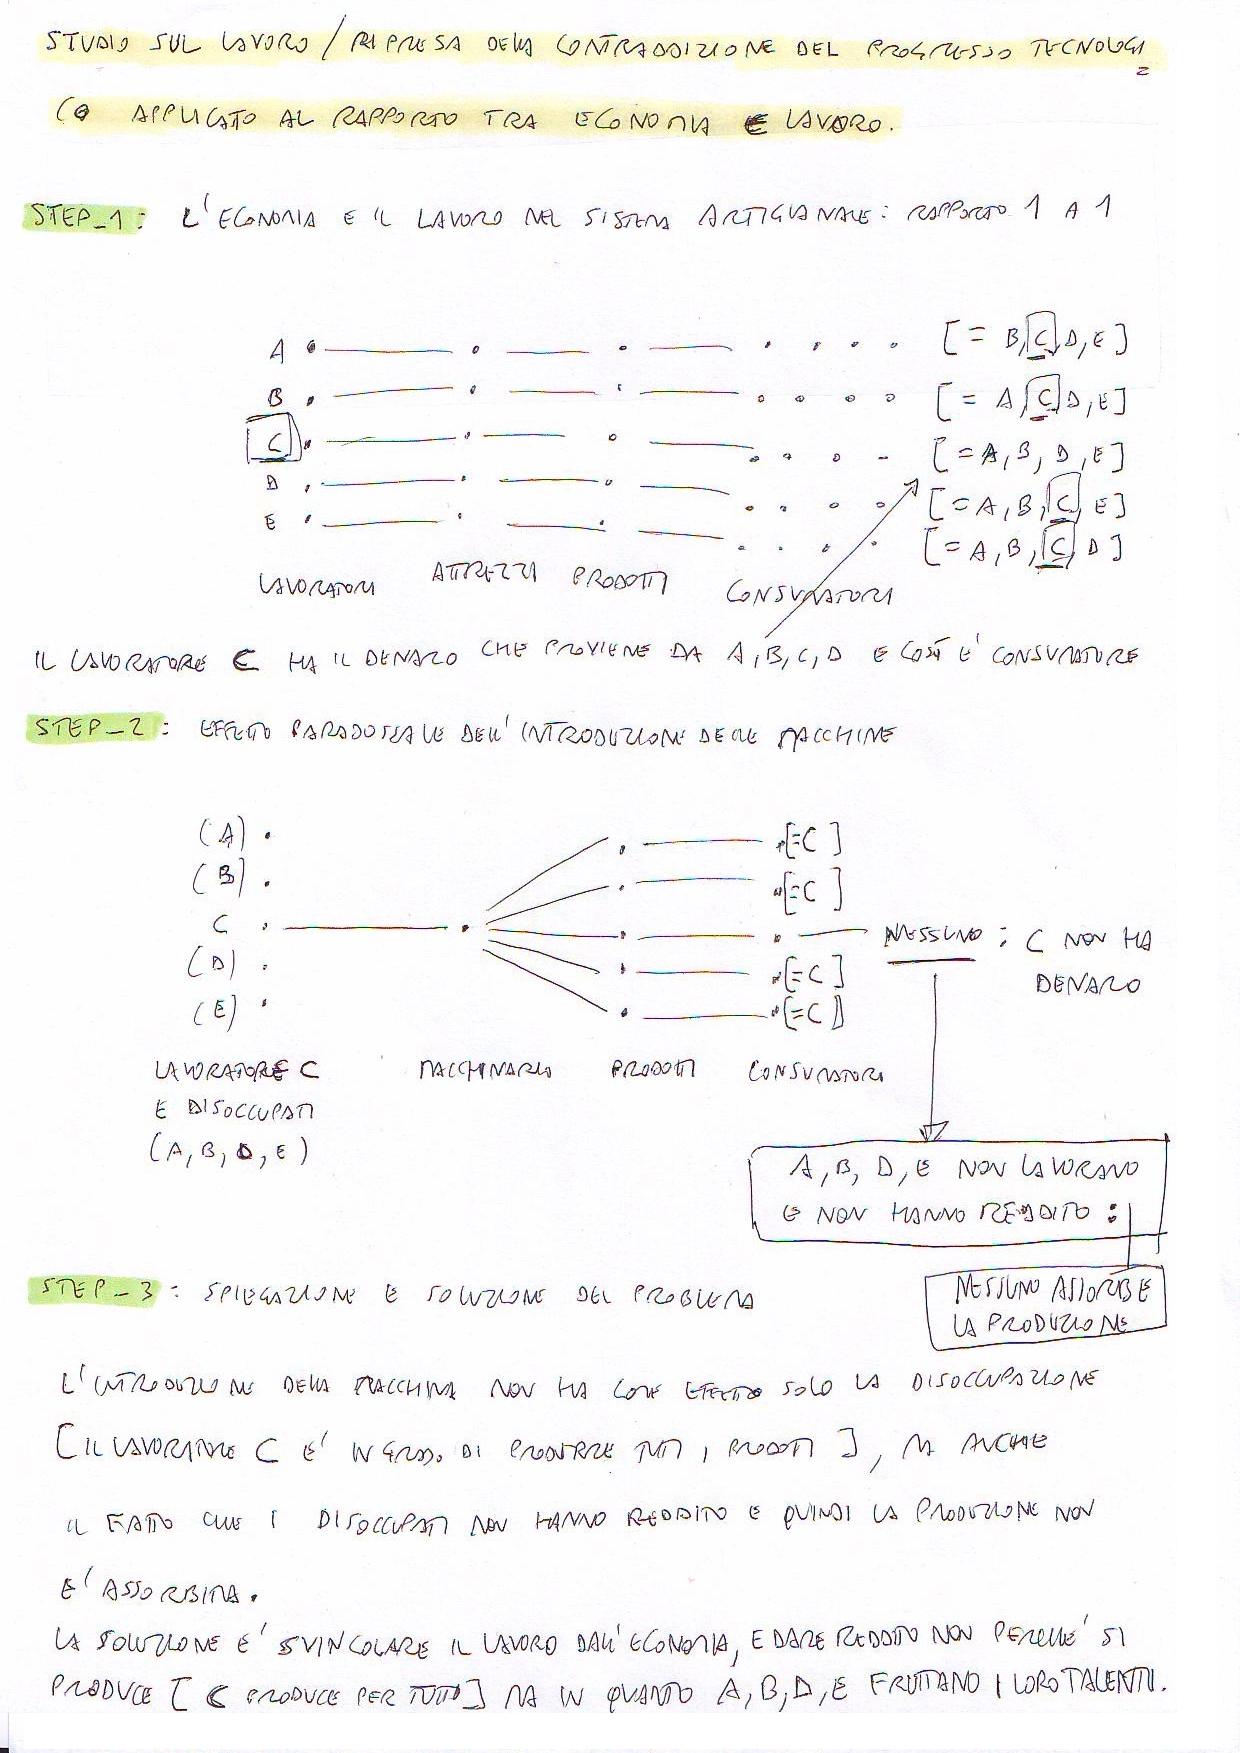 STUDIO SUL LAVORO / RIPRESA DELLA CONTRADDIZIONE DEL PROGRESSO TECNOLOGI
CO APPLICATO AL RAPPORTO TRA ECONOMIA E LAVORO.
STEP_1: L'ECONOMIA E IL LAVORO NEL SISTEMA ARTIGIANALE: RAPPORTO 1 A 1
A [= B, C, D, E]
B [= A, C, D, E]
C [= A, B, D, E]
D [= A, B, C, E]
E [= A, B, C, D]
LAVORATORI ATTREZZI PRODOTTI CONSUMATORI
IL LAVORATORE C HA IL DENARO CHE PROVIENE DA A, B, C, D E COSÌ E' CONSUMATORE
STEP_2: EFFETTO PARADOSSALE DELL'INTRODUZIONE DELLE MACCHINE
(A) [=C]
(B) [=C]
C NESSUNO: C NON HA
DENARO
(D) [=C]
(E) [=C]
LAVORATORE C MACCHINARIO PRODOTTI CONSUMATORI
E DISOCCUPATI
(A, B, D, E)
A, B, D, E NON LAVORANO
E NON HANNO REDDITO:
NESSUNO ASSORBE
LA PRODUZIONE
STEP_3: SPIEGAZIONE E SOLUZIONE DEL PROBLEMA
L'INTRODUZIONE DELLA MACCHINA NON HA COME EFFETTO SOLO LA DISOCCUPAZIONE
[IL LAVORATORE C E' IN GRADO DI PRODURRE TUTTI I PRODOTTI], MA ANCHE
IL FATTO CHE I DISOCCUPATI NON HANNO REDDITO E QUINDI LA PRODUZIONE NON
E' ASSORBITA.
LA SOLUZIONE E' SVINCOLARE IL LAVORO DALL'ECONOMIA, E DARE REDDITO NON PERCHE' SI
PRODUCE [C PRODUCE PER TUTTI] MA IN QUANTO A, B, D, E FRUTTANO I LORO TALENTI.